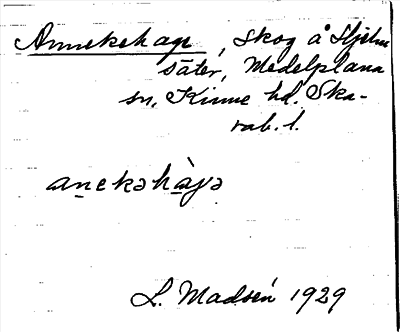 Annekehage, skog å Hjelm
säter, Medelplana
sn. Kinne hd. Ska-
rab. l.
anekəhàgə
L. Madsén 1929